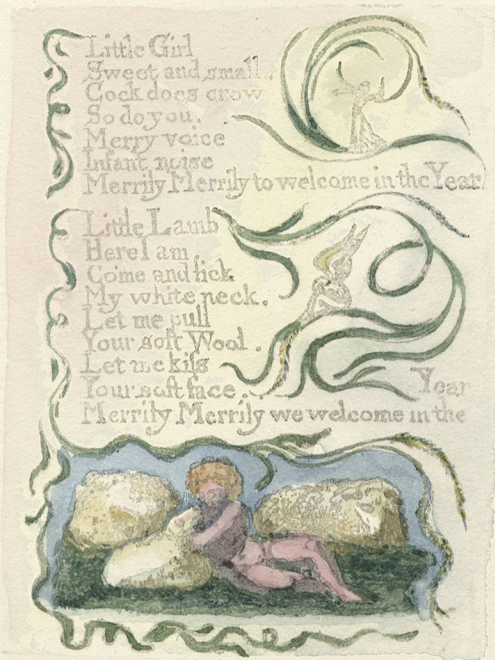 Little Girl
Sweet and small.
Cock does crow
So do you.
Merry voice
Infant noise
Merrily Merrily to welcome in the Year
Little Lamb
Here I am
Come and lick
My white neck.
Let me pull
Your soft Wool.
Let me kiss
Your soft face.
Merrily Merrily we welcome in the Year